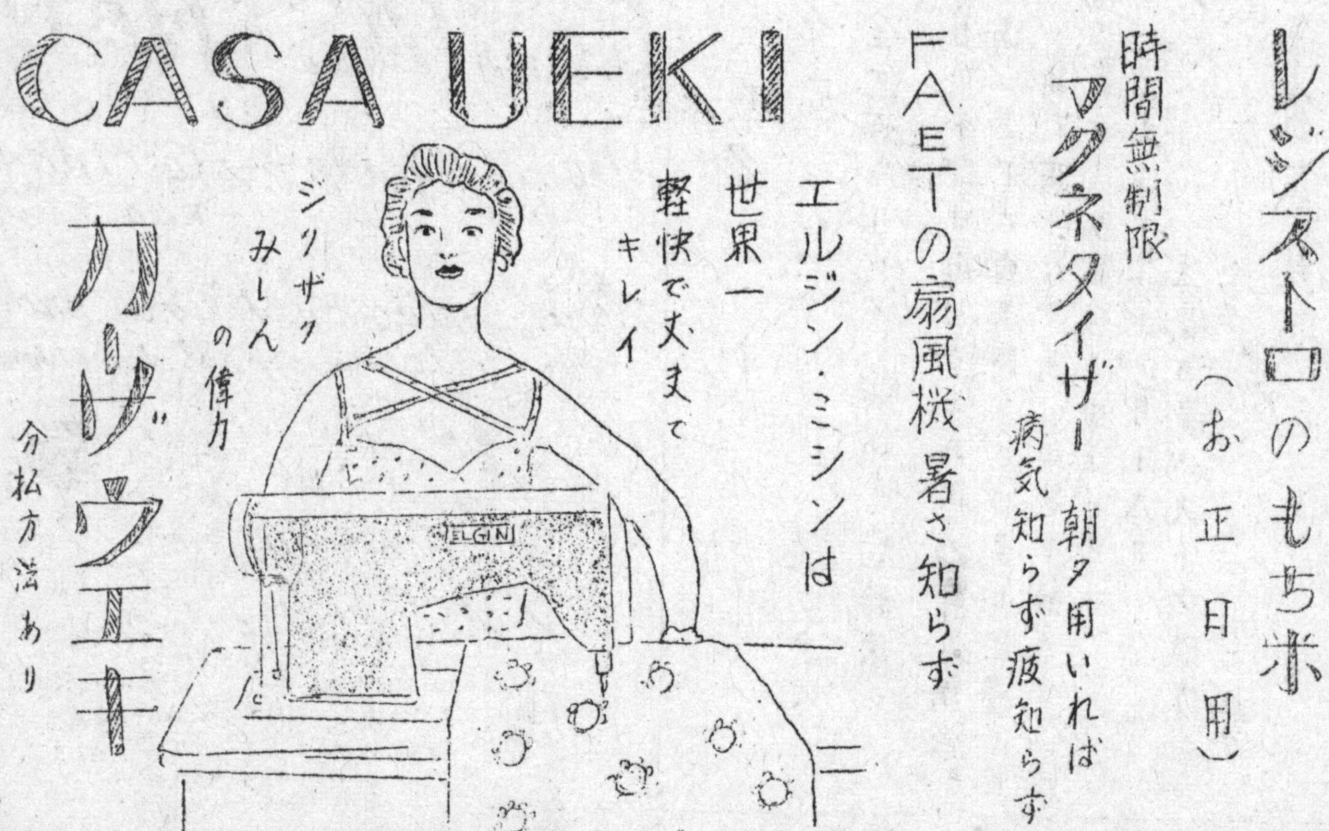 CASA UEKI
レジストロのもち米
(お正日用)
時間無制限
マグネタイザー
朝夕用いれば
病気知らず疲知らず
FAETの扇風機 暑さ知らず
エルジン・ミシンは
世界一
軽快で丈夫で
キレイ
ジグザグ
みしん
の偉力
カーザウエキ
分払方法あり
ELGIN